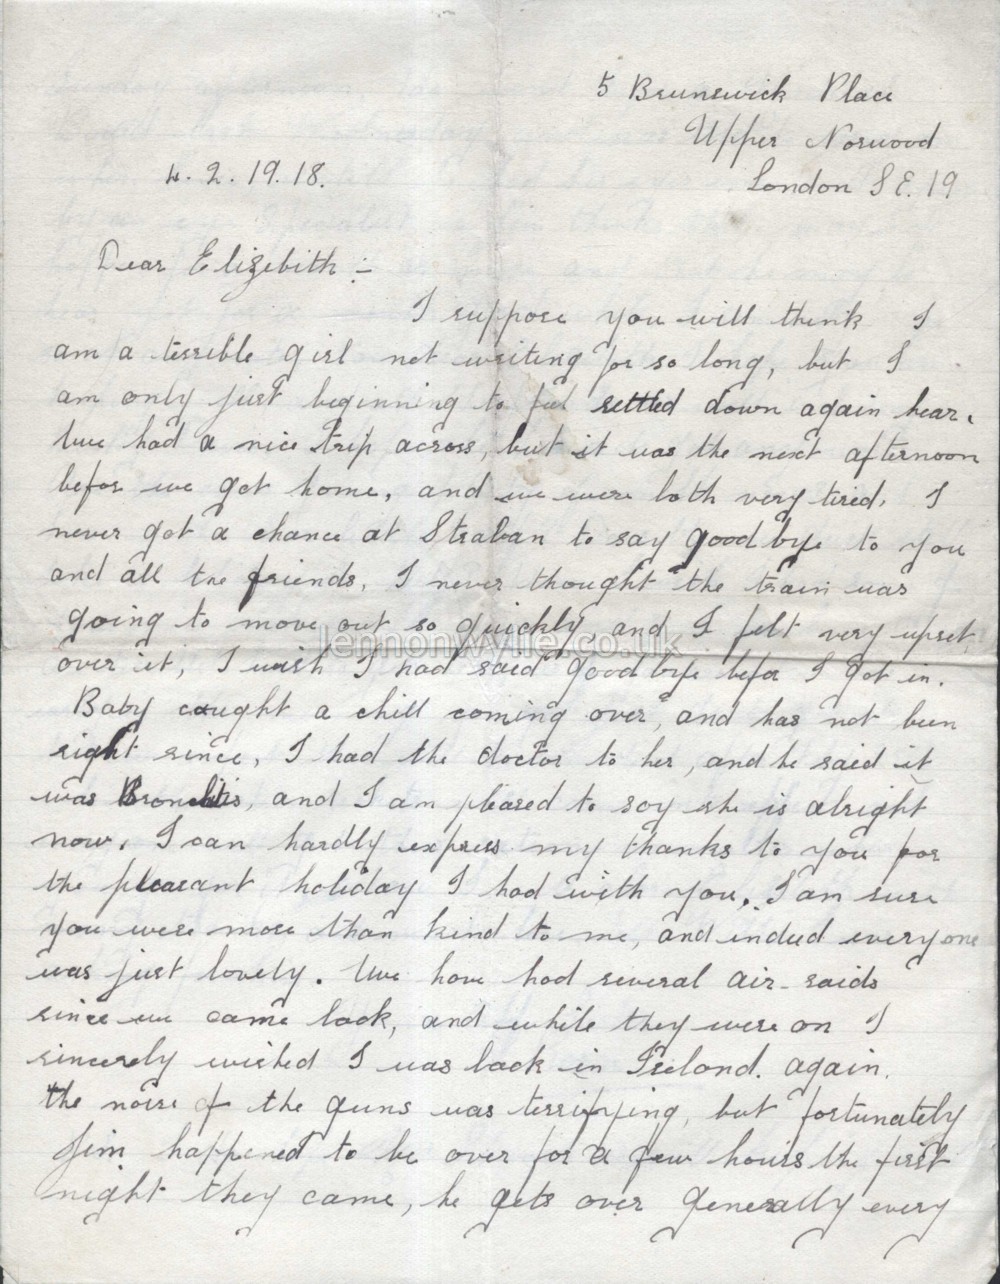 5 Brunswick Place
Upper Norwood
London S E. 19
4. 2. 19.18.
Dear Elizebith :-
I suppose you will think I
am a terrible girl not writing for so long, but I
am only just beginning to feel settled down again hear.
We had a nice trip across, but it was the next afternoon
befor we got home, and we were both very tired. I
never got a chance at Straban to say goodbye to you
and all the friends, I never thought the train was
going to move out so quickly, and I felt very upset
over it, I wish I had said goodbye befor I got in.
Baby caught a chill coming over, and has not been
right since, I had the doctor to her, and he said it
was Bronclitis, and I am pleased to say she is alright
now. I can hardly express my thanks to you for
the pleasant holiday I had with you. I am sure
you were more than kind to me, and indeed everyone
was just lovely. We have had several air-raids
since we came back, and while they were on I
sincerely wished I was back in Ireland. again.
the noise of the guns was terrifying, but fortunately
Jim happened to be over for a few hours the first
night they came, he gets over generally every
lennonwylie.co.uk